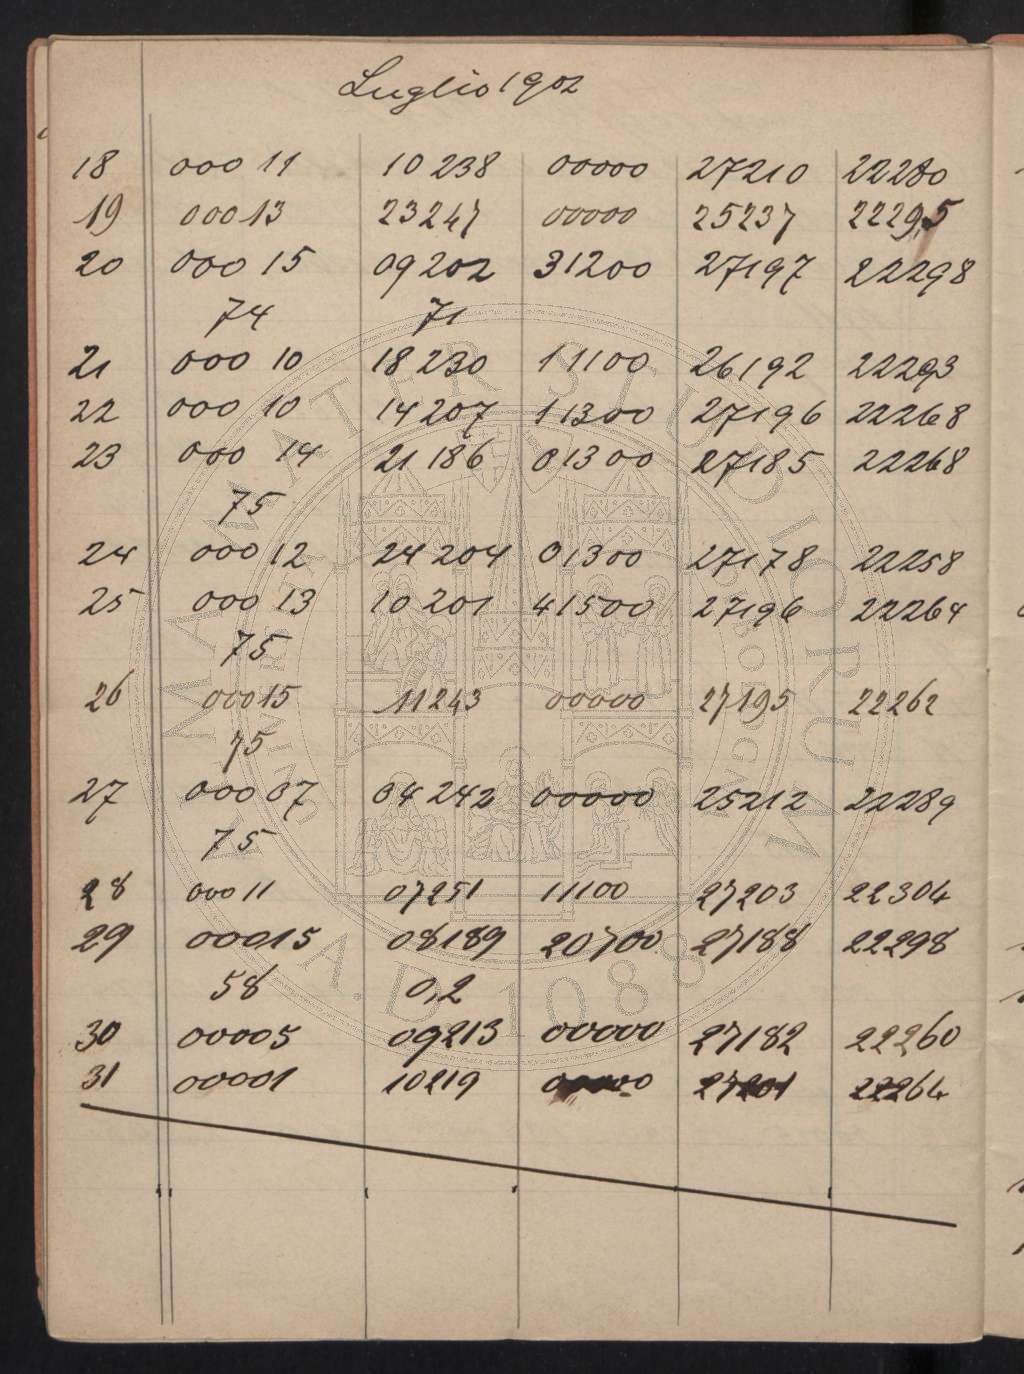 Luglio 1902
18 000 11 10 238 00000 27210 22280
19 000 13 23247 00000 25237 22295
20 000 15 09202 31200 27197 22298
74 71
21 000 10 18 230 11100 26192 22293
22 000 10 14207 11300 27196 22268
23 000 14 21 186 01300 27185 22268
75
24 000 12 24 204 01300 27178 22258
25 000 13 10 201 41500 27196 22264
75
26 00015 11243 00000 27195 22262
75
27 000 07 04 242 00000 25212 22289
75
28 000 11 07251 11100 27203 22304
29 00015 08189 20700 27188 22298
58 0,2
30 00005 09213 00000 27182 22260
31 00001 10219 00000 27201 22264
ALMA MATER STUDIORUM
A.D. 1088